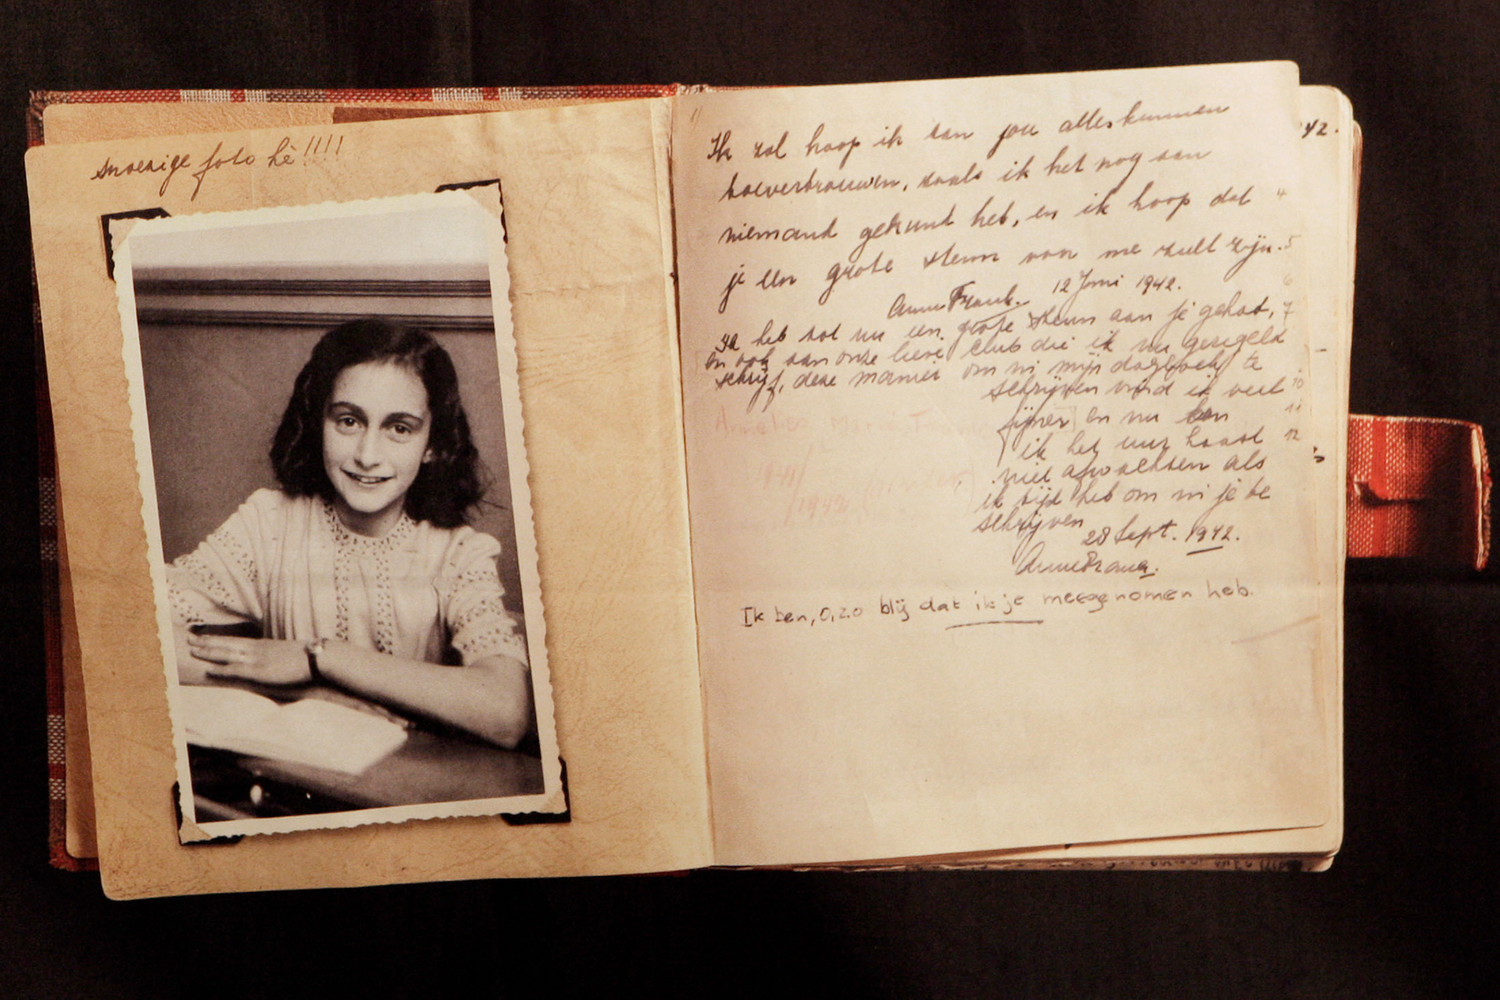 snoezige foto hè!!!!
Ik zal hoop ik aan jou alles kunnen
toevertrouwen, zoals ik het nog aan
niemand gekund heb, en ik hoop dat
je een grote steun voor me zult zijn.
Anne Frank. 12 Juni 1942.
Ik heb tot nu een grote steun aan je gehad,
en ook aan onze lieve club die ik nu geregeld
schrijf, deze manier om in mijn dagboek te
schrijven vind ik veel
fijner en nu kan
ik het uur haast
niet afwachten als
ik tijd heb om in je te
schrijven
28 Sept. 1942.
Anne Frank.
Ik ben, o, zo blij dat ik je meegenomen heb.
42.
4
5
6
7
10
11
12
Annelies Marie Frank
1941/
/1942